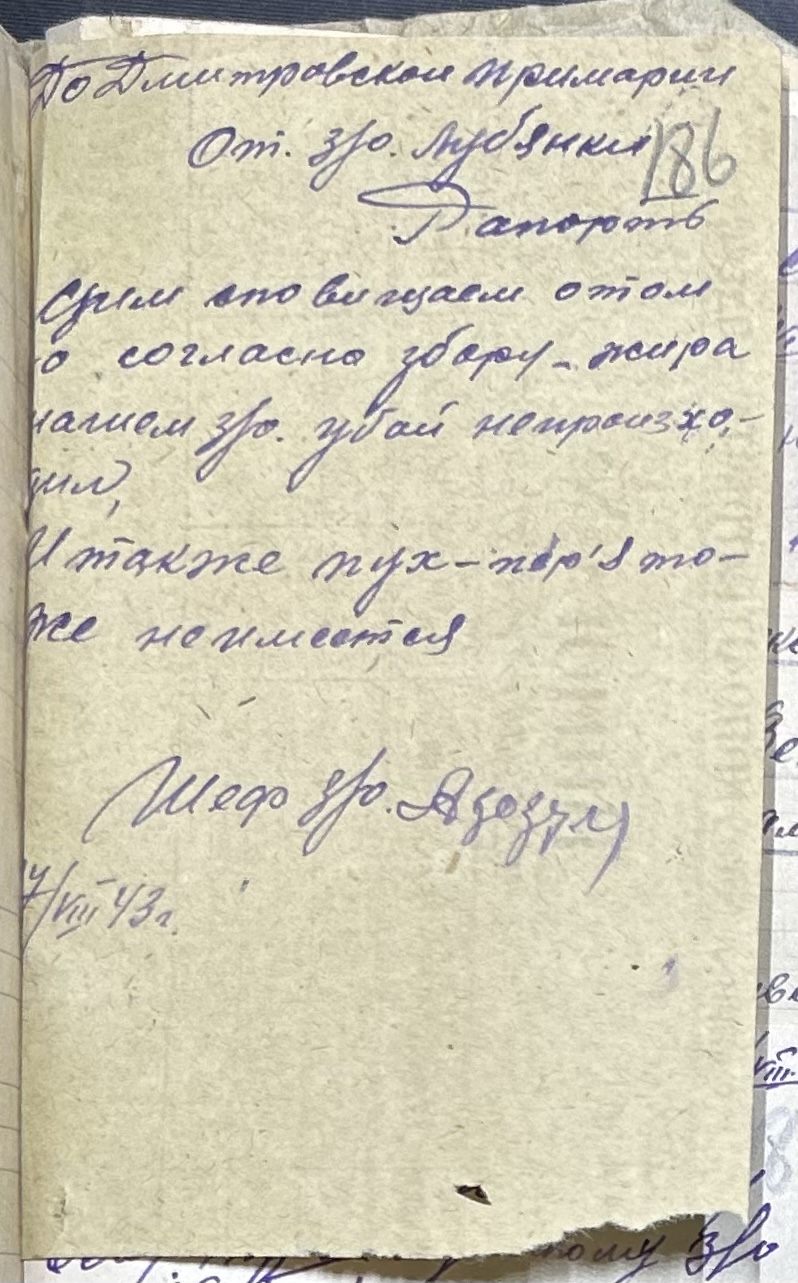 До Дмитровскои примарии
От. з/о. Лубянки
186
Рапортъ
Сдим сповищаем отом
о согласно збору жира
нашем з/о. убой непроизхо-
дил,
И также пух-пер'я то-
же неимеется
Шеф з/о.
7/VIII 43 г.